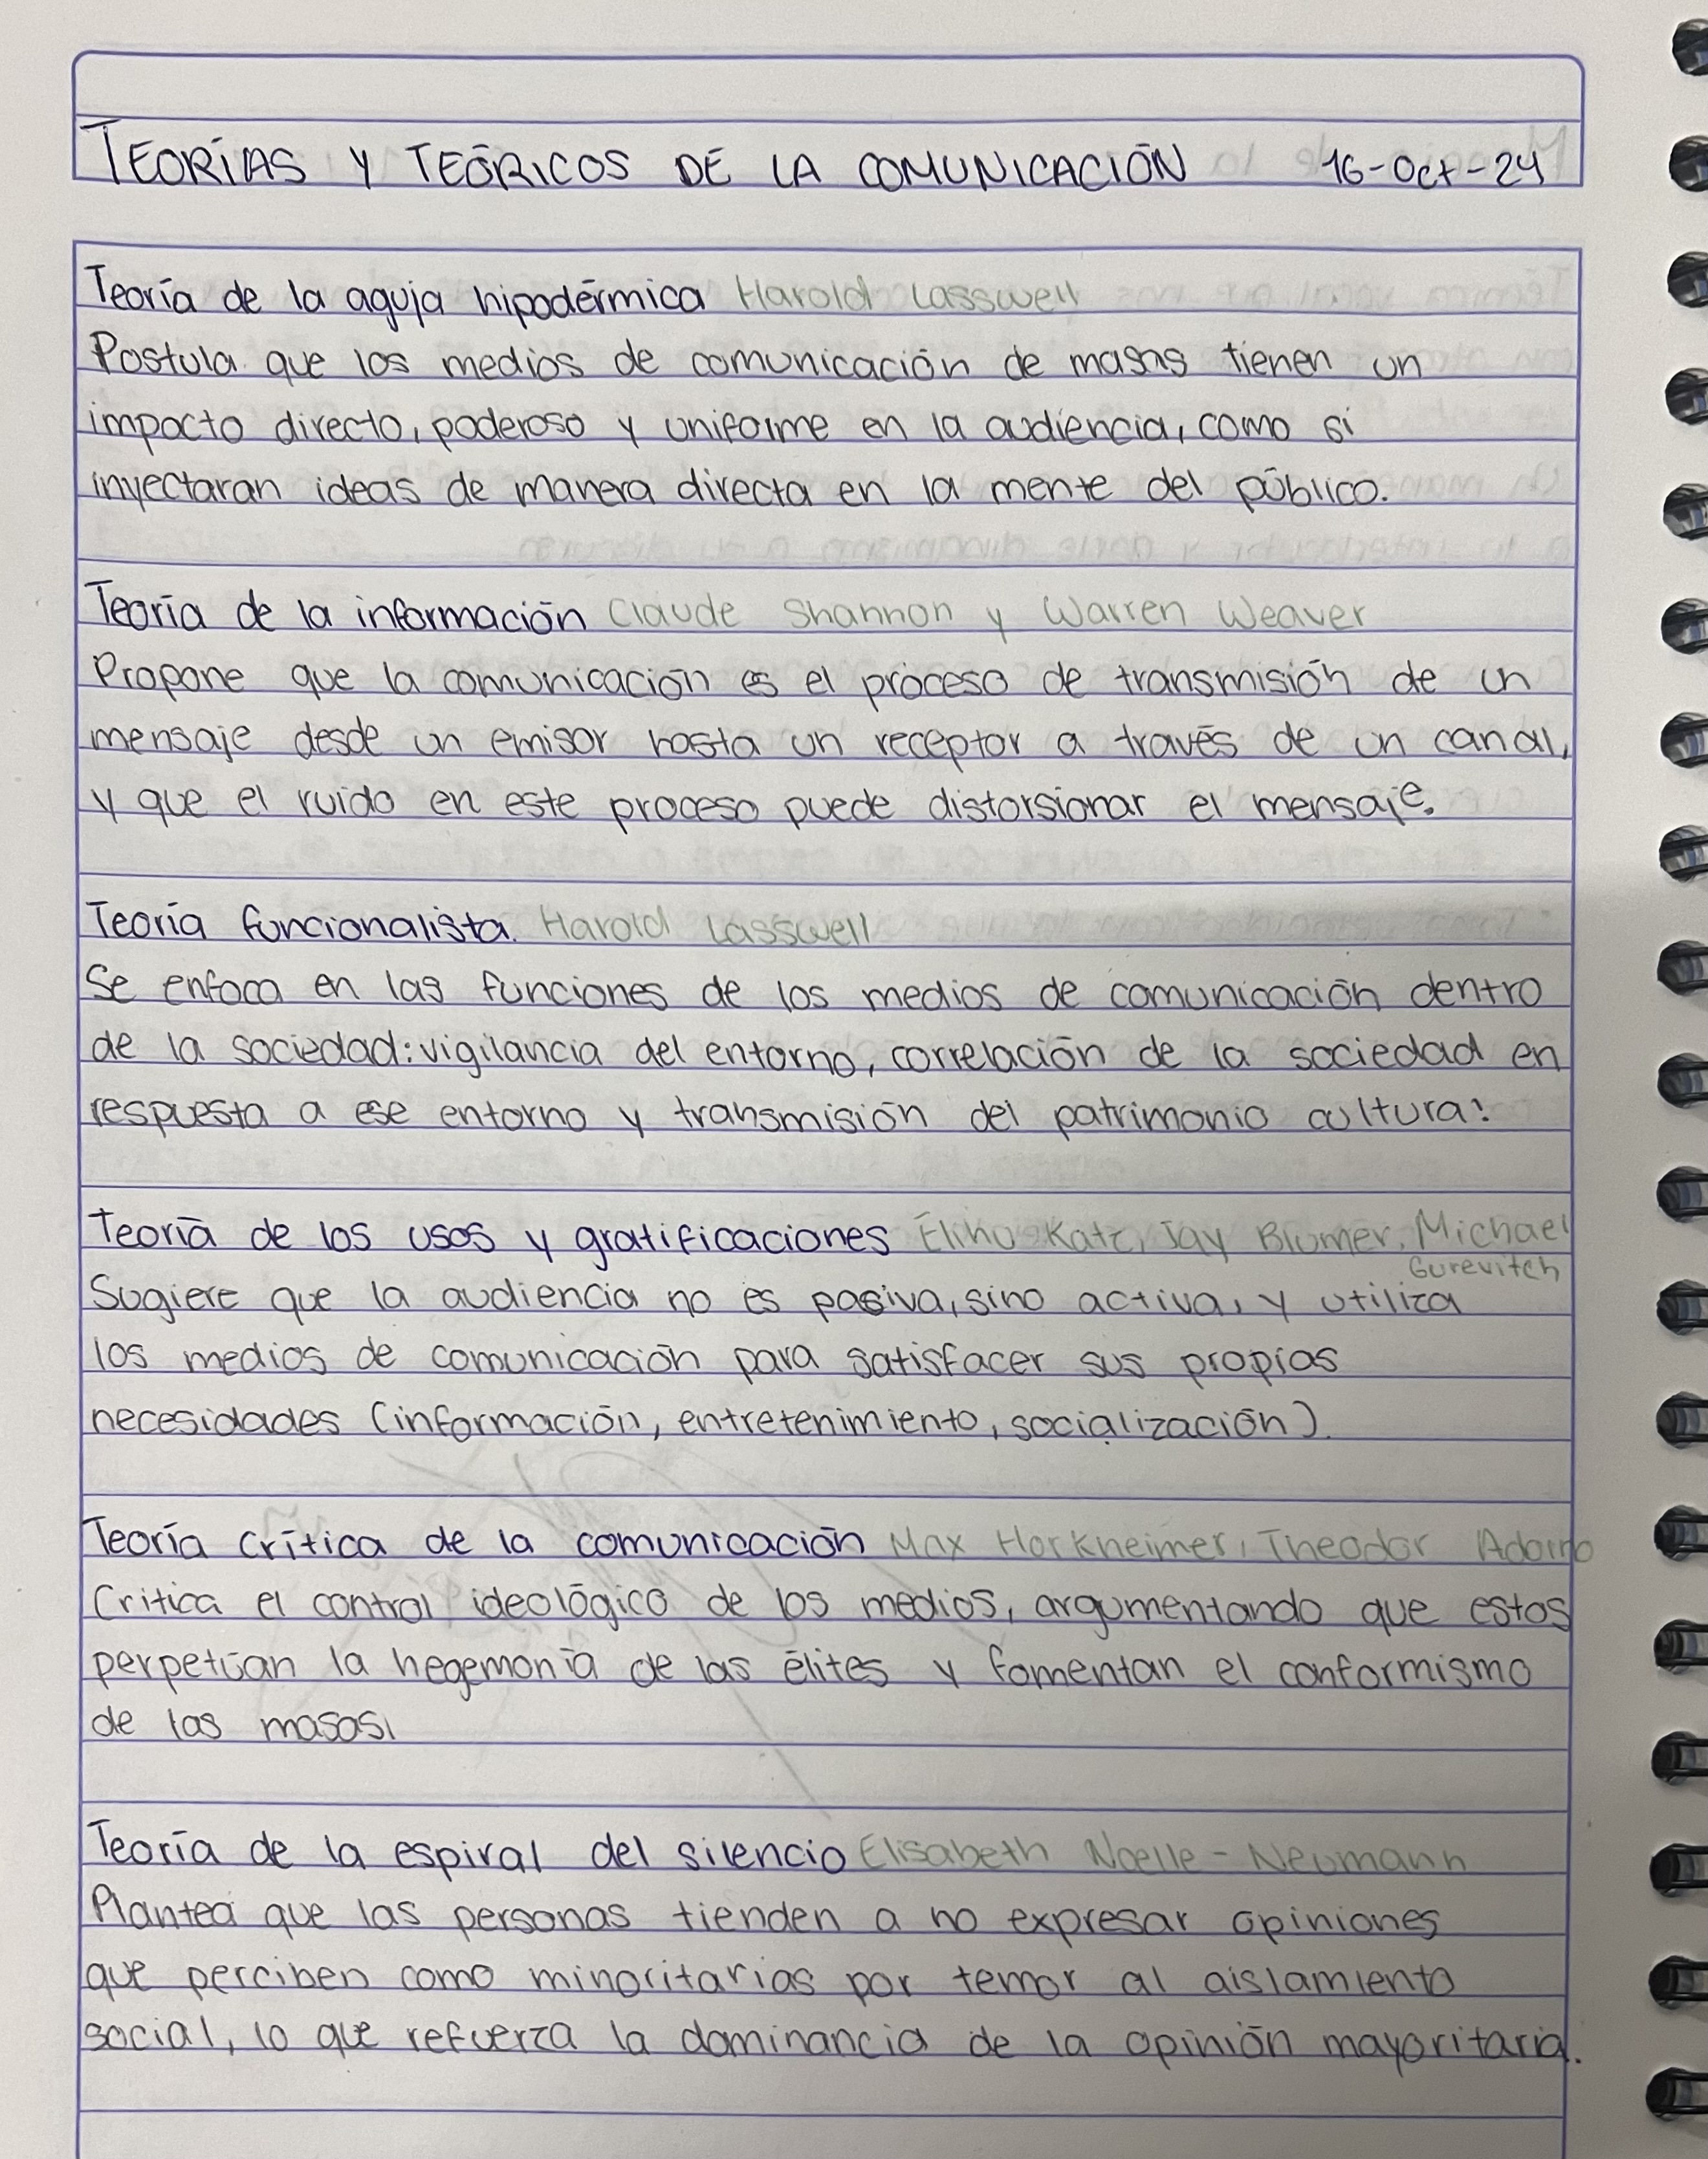 TEORÍAS Y TEÓRICOS DE LA COMUNICACIÓN 16-Oct-24
Teoría de la aguja hipodérmica Harold Lasswell
Postula que los medios de comunicación de masas tienen un
impacto directo, poderoso y uniforme en la audiencia, como si
inyectaran ideas de manera directa en la mente del público.
Teoría de la información Claude Shannon y Warren Weaver
Propone que la comunicación es el proceso de transmisión de un
mensaje desde un emisor hasta un receptor a través de un canal,
y que el ruido en este proceso puede distorsionar el mensaje.
Teoría funcionalista. Harold Lasswell
Se enfoca en las funciones de los medios de comunicación dentro
de la sociedad: vigilancia del entorno, correlación de la sociedad en
respuesta a ese entorno y transmisión del patrimonio cultural.
Teoría de los usos y gratificaciones Elihu Katz, Jay Blumer, Michael
Gurevitch
Sugiere que la audiencia no es pasiva, sino activa, y utiliza
los medios de comunicación para satisfacer sus propias
necesidades (información, entretenimiento, socialización).
Teoría crítica de la comunicación Max Horkheimer, Theodor Adorno
Critica el control ideológico de los medios, argumentando que estos
perpetúan la hegemonía de las élites y fomentan el conformismo
de las masas.
Teoría de la espiral del silencio Elisabeth Noelle-Neumann
Plantea que las personas tienden a no expresar opiniones
que perciben como minoritarias por temor al aislamiento
social, lo que refuerza la dominancia de la opinión mayoritaria.